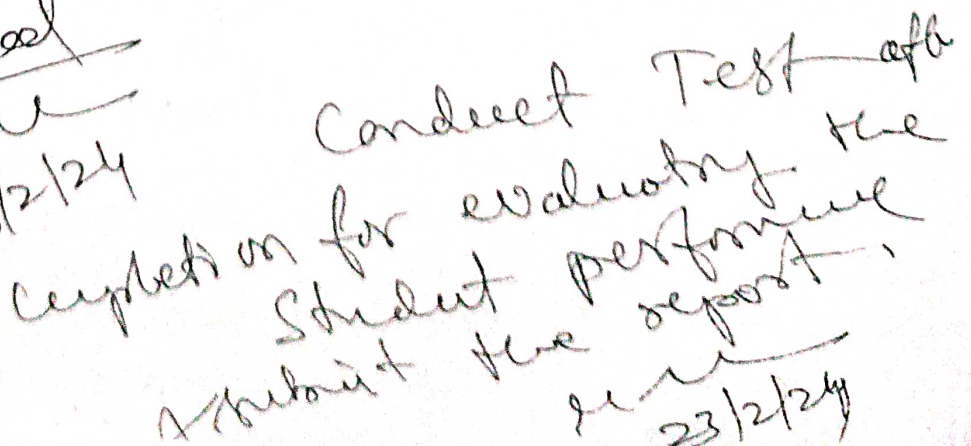 Conduct Test
completion for evaluating the
Student performance
& submit the report.
23/2/24